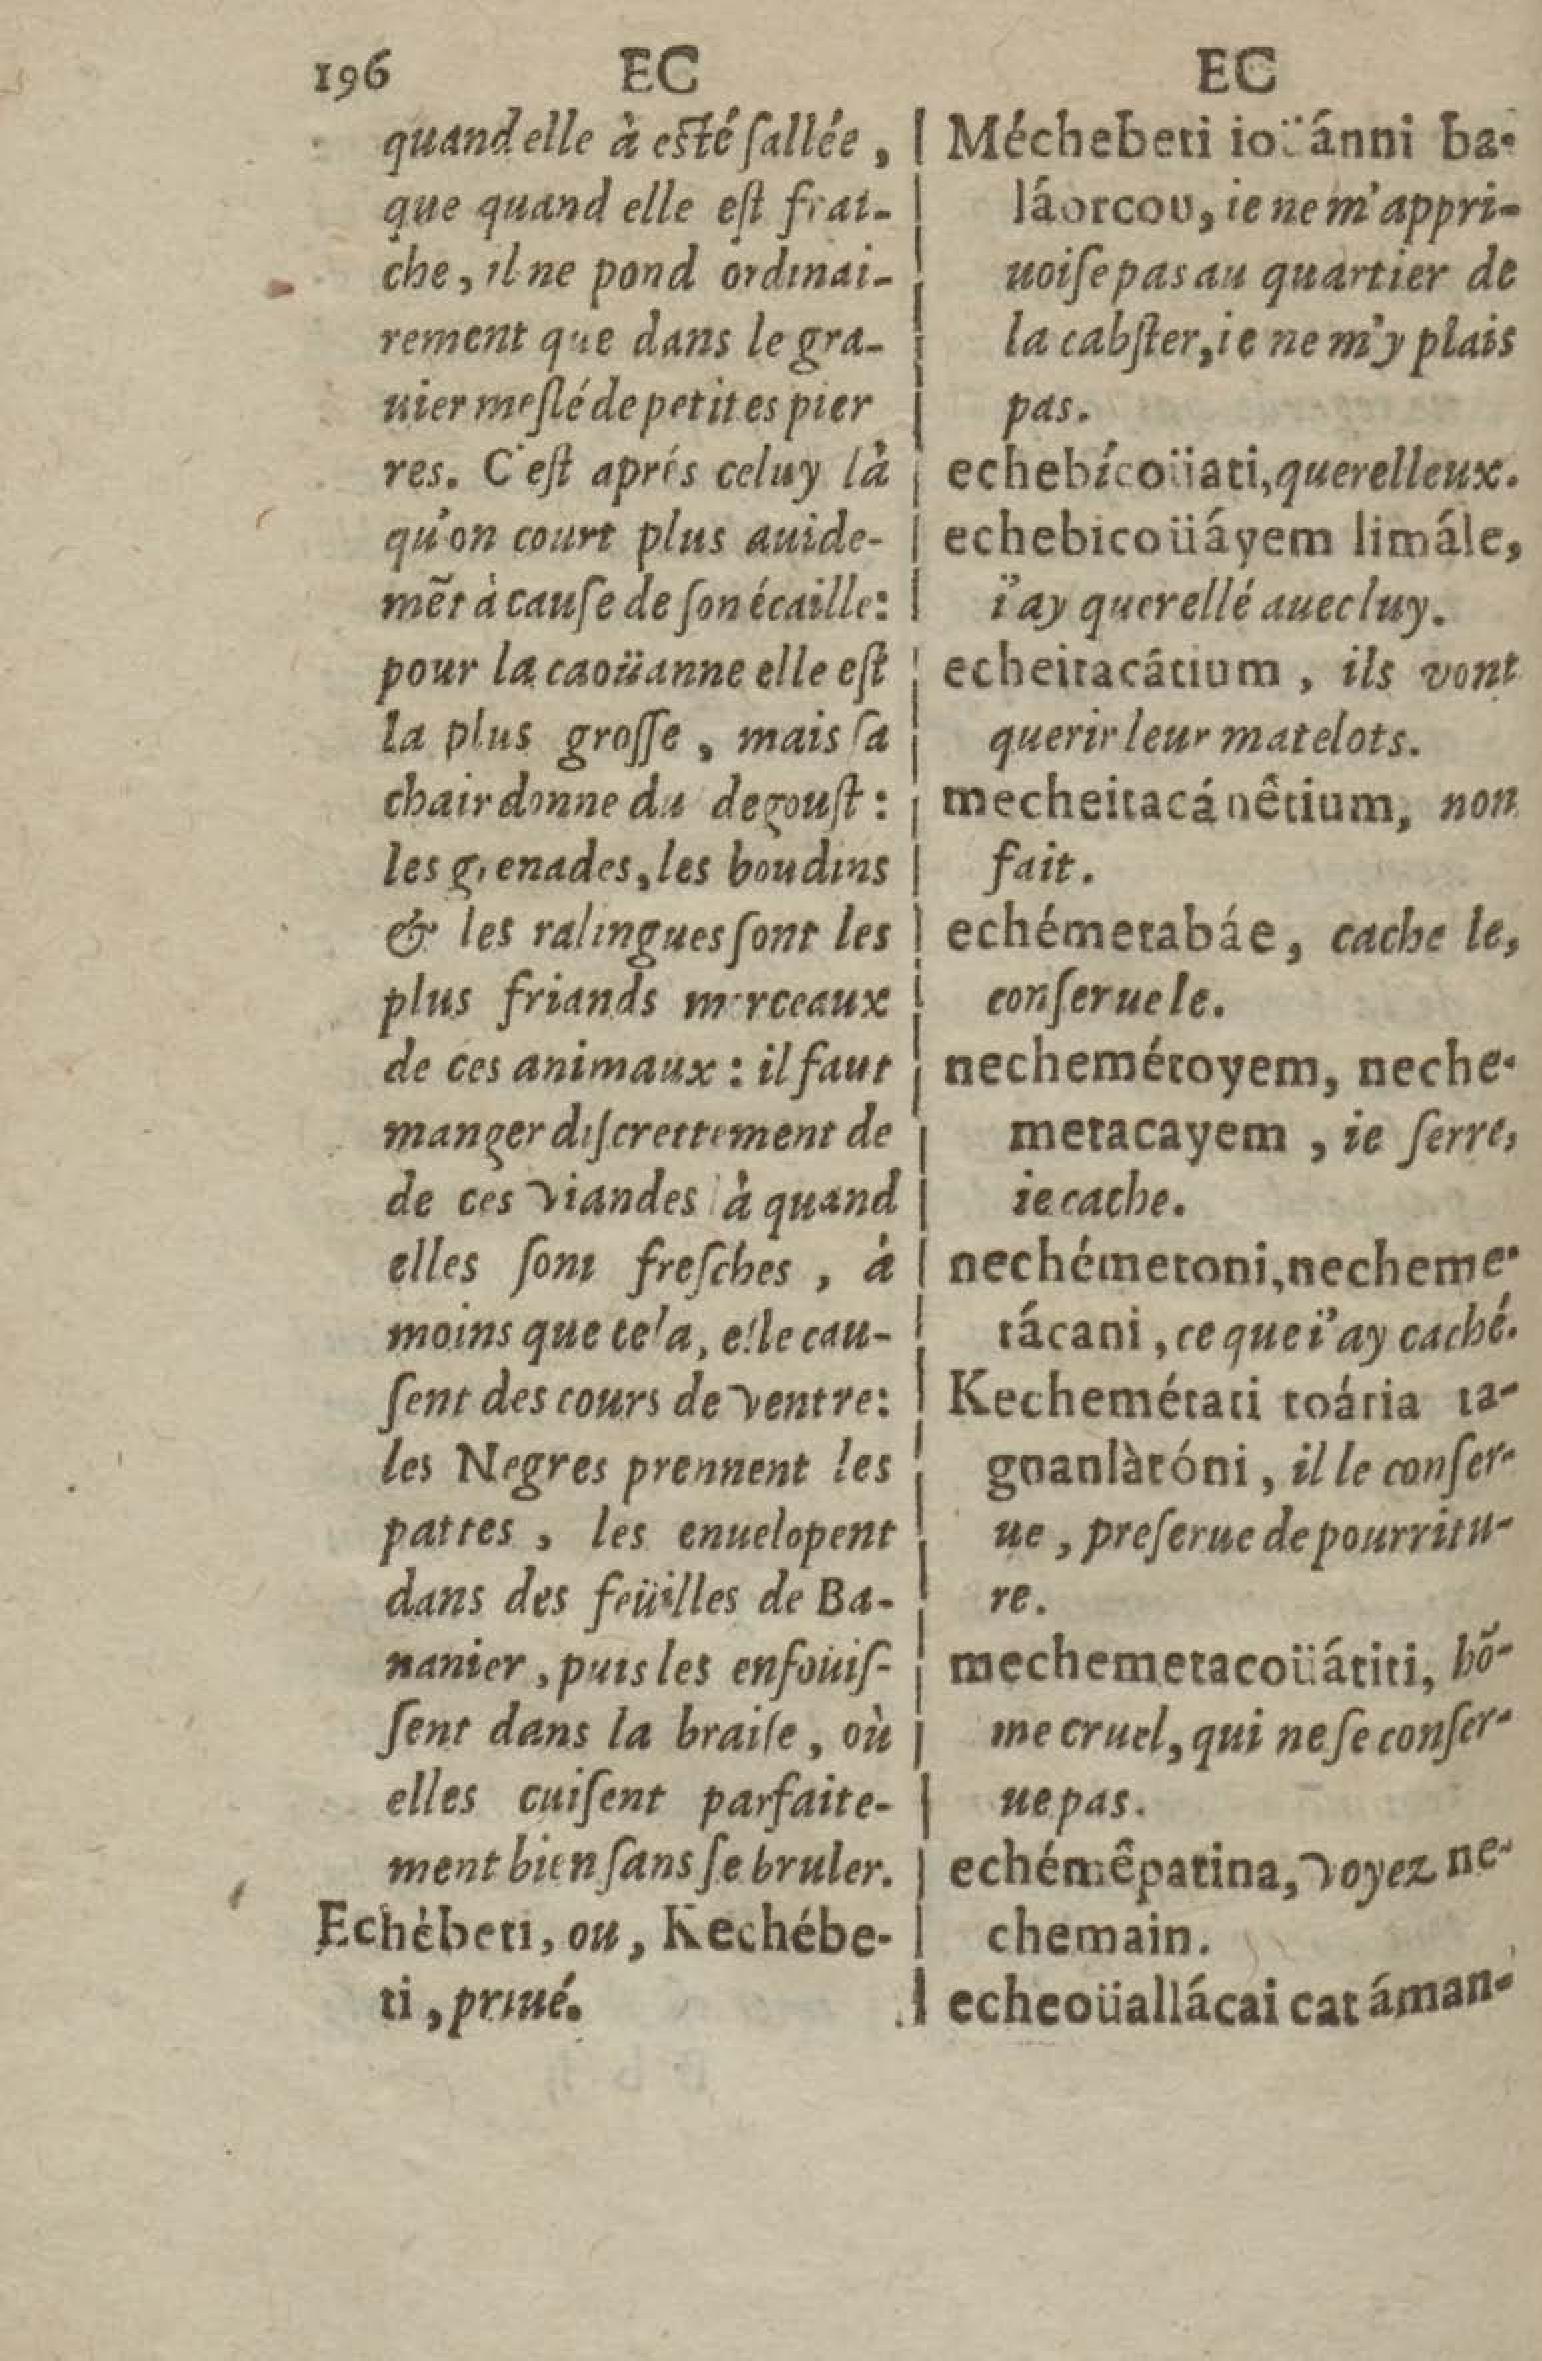 196 EC EC
quand elle à esté ſallée,
que quand elle eſt frai-
che, il ne pond ordinai-
rement que dans le gra-
uier meſlé de petites pier
res. C'eſt aprés celuy là
qu'on court plus auide-
mẽt à cauſe de ſon écaille:
pour la caoüanne elle eſt
la plus groſſe, mais ſa
chair donne du degouſt:
les grenades, les boudins
& les ralingues ſont les
plus friands morceaux
de ces animaux: il faut
manger diſcrettement de
de ces viandes là quand
elles ſont freſches, à
moins que cela, elle cau-
ſent des cours de ventre:
les Negres prennent les
pattes, les enuelopent
dans des feüilles de Ba-
nanier, puis les enfoüiſ-
ſent dans la braiſe, où
elles cuiſent parfaite-
ment bien ſans ſe bruler.
Echèbeti, ou, Kechébe-
ti, priué.
Méchebeti ioüánni ba-
láorcou, ie ne m'appri-
uoiſe pas au quartier de
la cabſter, ie ne m'y plais
pas.
echebícoüati, querelleux.
echebicoüáyem limále,
i'ay querellé auec luy.
echeitacátium, ils vont
querir leur matelots.
mecheitacánêtium, non
fait.
echémetabáe, cache le,
conſerue le.
nechemétoyem, neche-
metacayem, ie ſerre,
ie cache.
nechémetoni, necheme-
tácani, ce que i'ay caché.
Kechemétati toária ta-
gnanlàtóni, il le conſer-
ue, preſerue de pourritu-
re.
mechemetacoüátiti, hõ-
me cruel, qui ne ſe conſer-
ue pas.
echémêpatina, voyez ne-
chemain.
echeoüallácai cat áman-